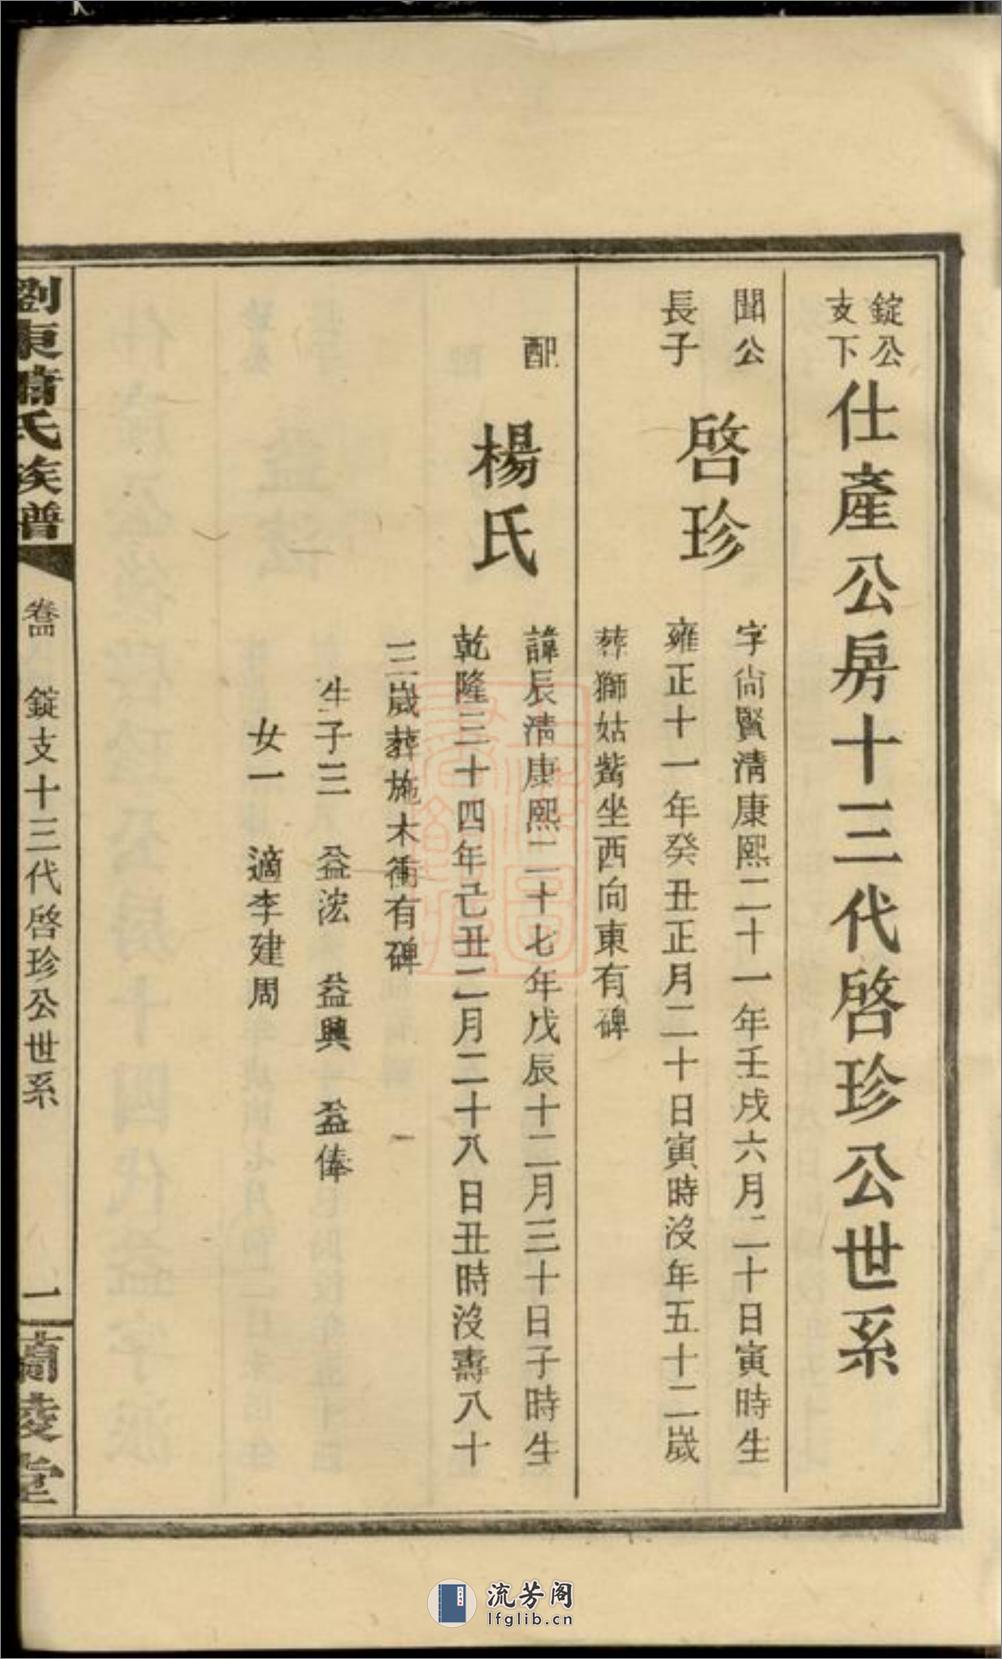 錠公
支下
仕產公房十三代啓珍公世系
聞公
長子
啓珍
字尙賢清康熙二十一年壬戌六月二十日寅時生
雍正十一年癸丑正月二十日寅時沒年五十二歲
葬獅姑觜坐西向東有碑
配
楊氏
諱辰清康熙二十七年戊辰十二月三十日子時生
乾隆三十四年己丑二月二十八日丑時沒壽八十
三歲葬施木衝有碑
生子三 益浤 益興 益俸
女一 適李建周
劉東蕭氏族譜
卷四 錠支十三代啓珍公世系
一
蘭陵堂
流芳阁
lfglib.cn